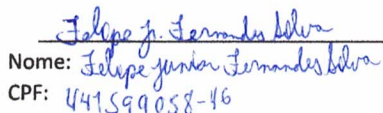 Felipe Jr. Fernandes Silva
Nome: Felipe junior Fernandes Silva
CPF: 441599058-46